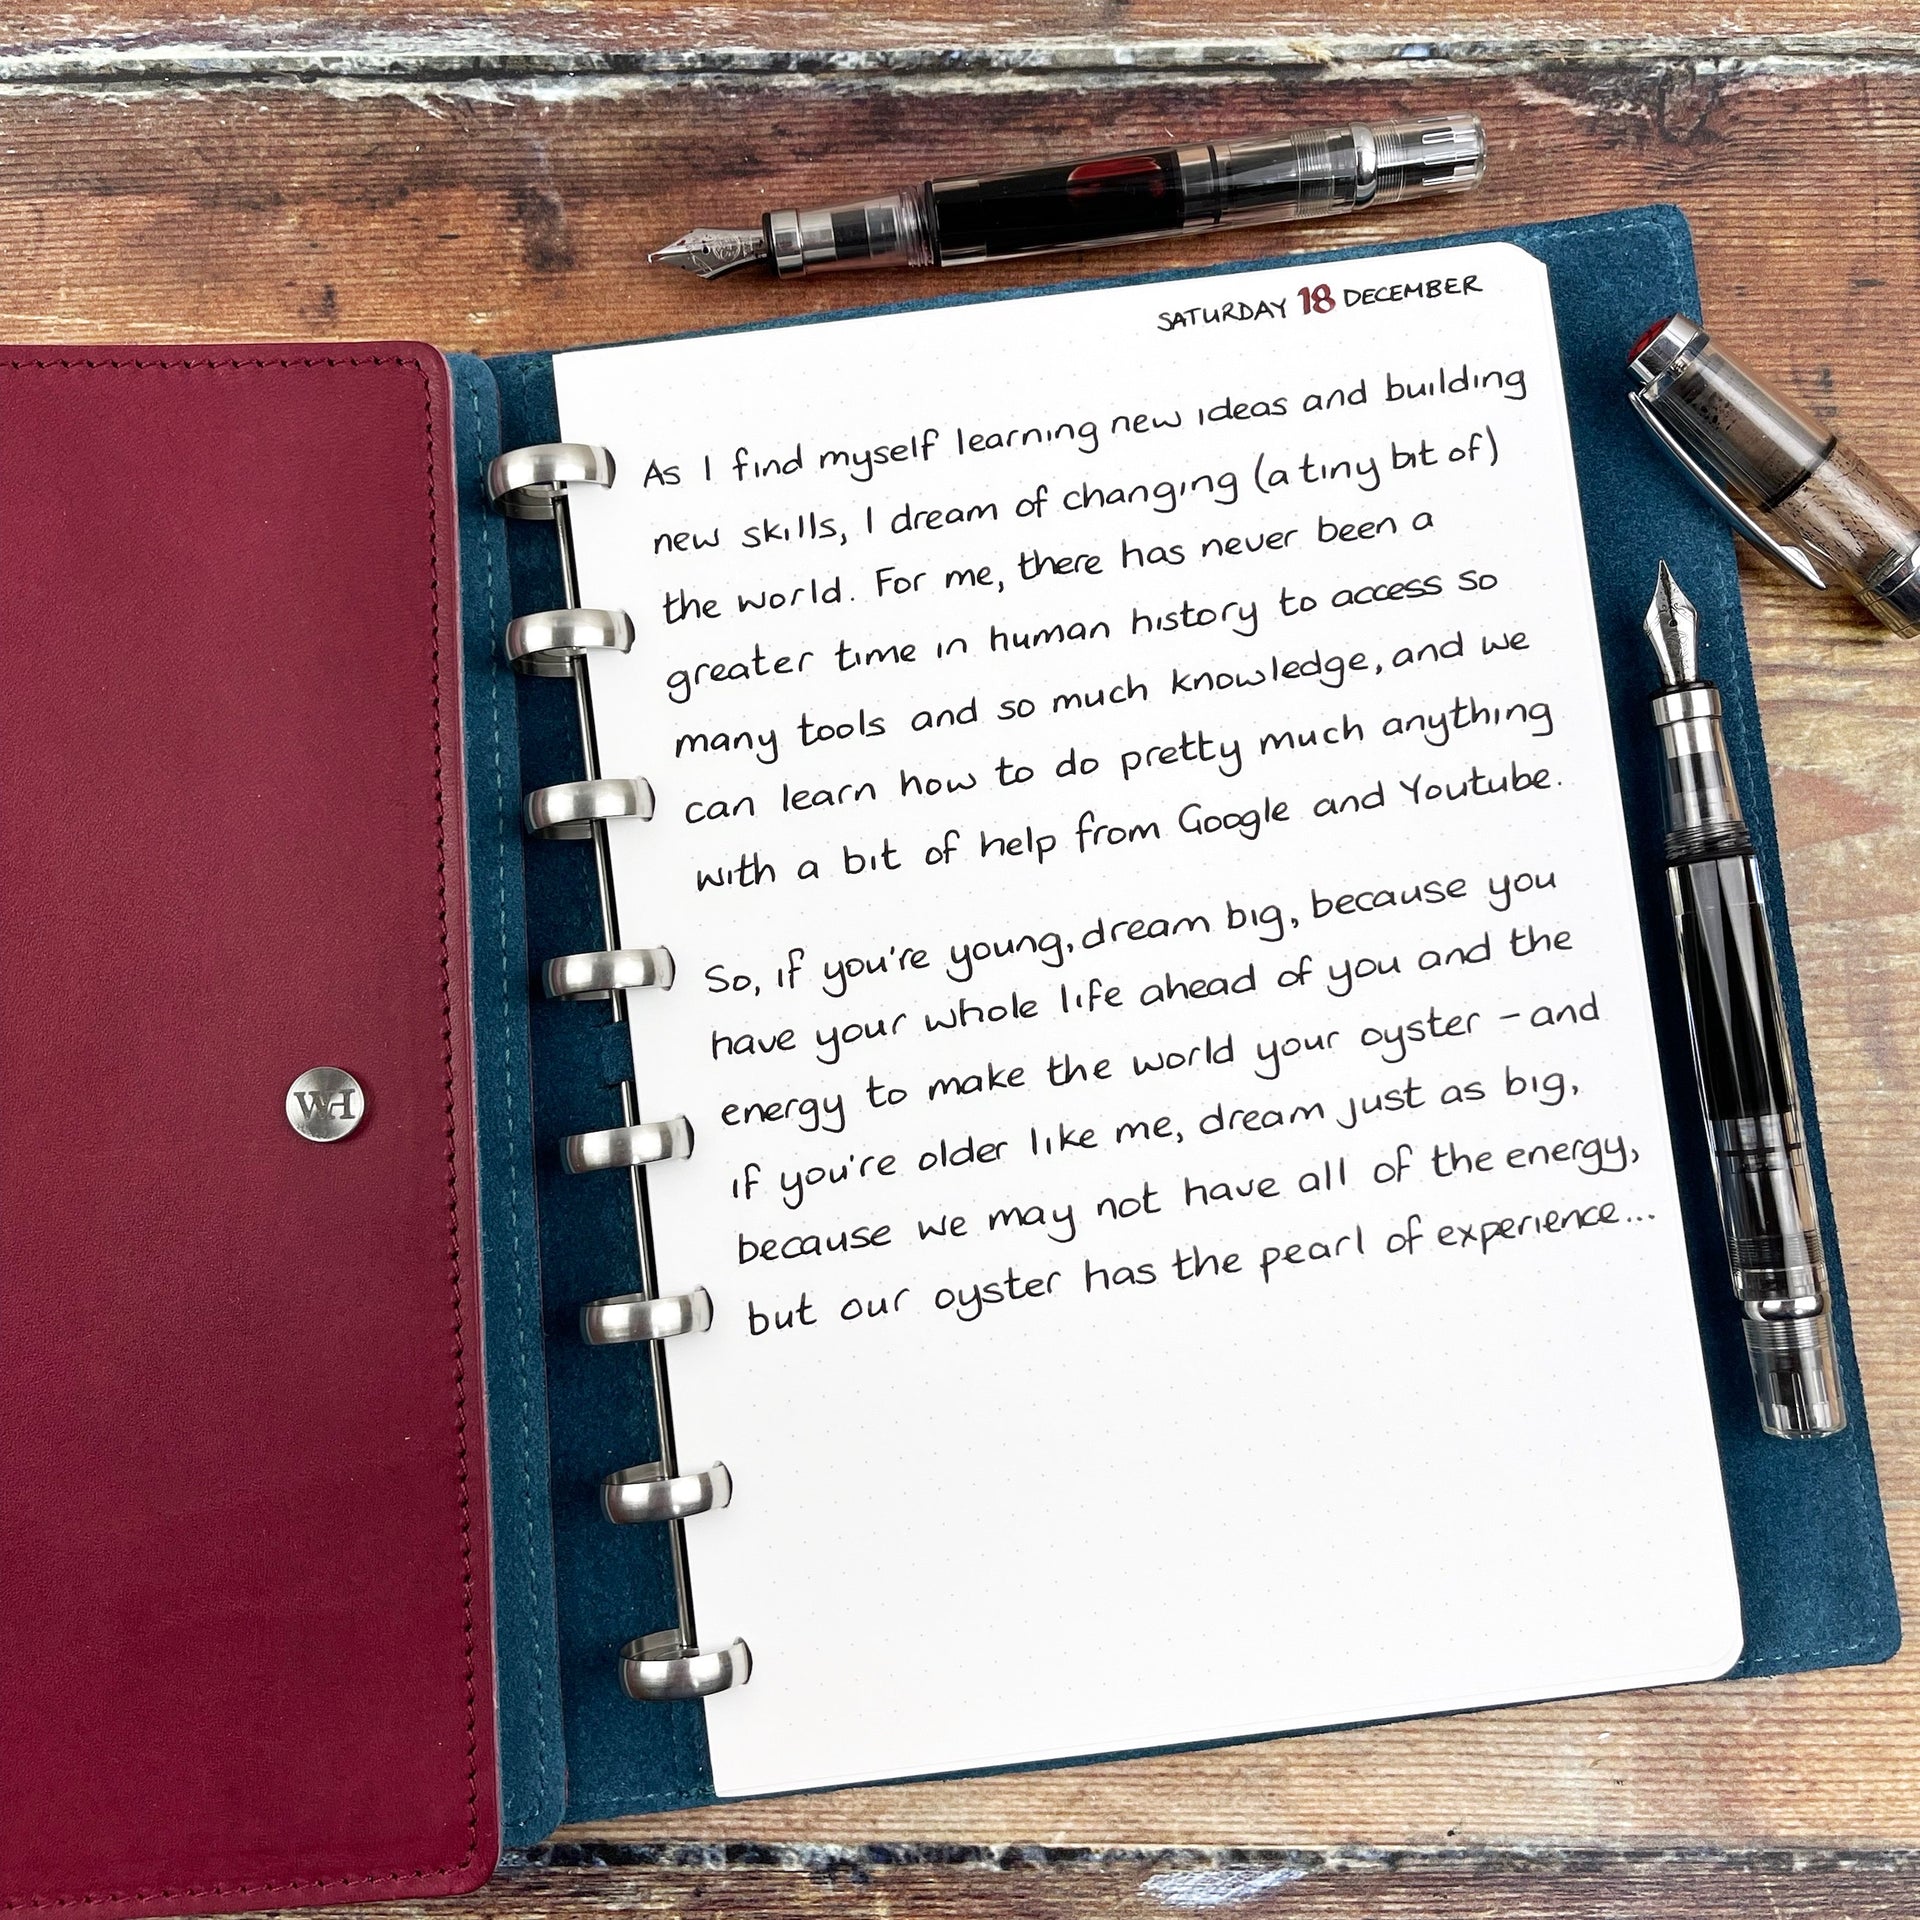 SATURDAY 18 DECEMBER
As I find myself learning new ideas and building
new skills, I dream of changing (a tiny bit of)
the world. For me, there has never been a
greater time in human history to access so
many tools and so much knowledge, and we
can learn how to do pretty much anything
with a bit of help from Google and Youtube.
So, if you're young, dream big, because you
have your whole life ahead of you and the
energy to make the world your oyster - and
if you're older like me, dream just as big,
because we may not have all of the energy,
but our oyster has the pearl of experience...
WH